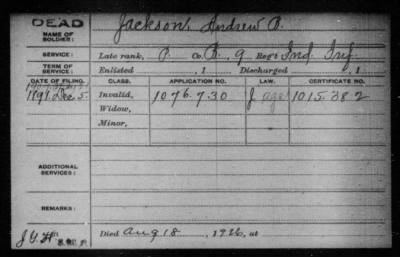 DEAD
NAME OF SOLDIER:
Jackson, Andrew B.
SERVICE:
Late rank, P Co. B, 9 Reg't Ind. Inf.
TERM OF SERVICE:
Enlisted , 1 Discharged , 1
DATE OF FILING. CLASS. APPLICATION NO. CERTIFICATE NO.
1891 Dec 5. Invalid, 1076.730 J age 1015.382
Widow,
Minor,
ADDITIONAL SERVICES:
REMARKS:
Died Aug 18, 1926, at